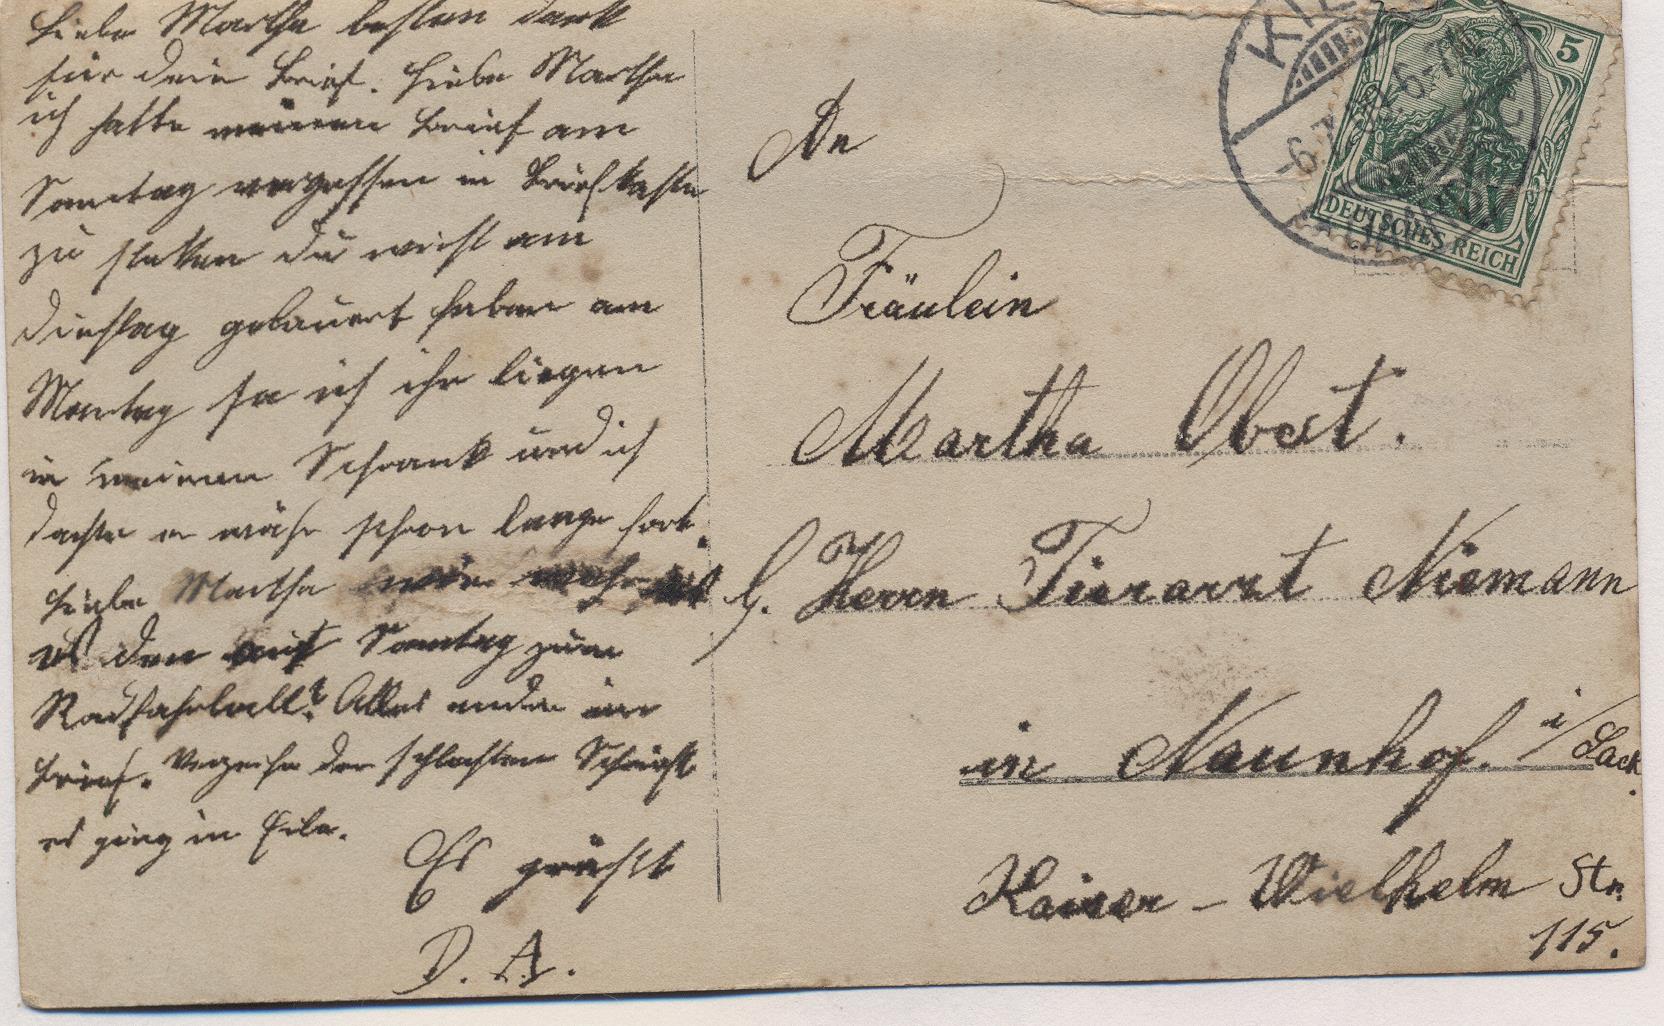 Liebe Martha besten dank
für dein Brief. Liebe Martha
ich hatte meinen Brief am
Sonntag vergessen in Briefkasten
zu stecken du wirst am
Dienstag gelauert haben am
Montag sa ich ihn liegen
in meinen Schrank und ich
dachte er währ schon lange fort.
Liebe Martha wie
den Sonntag zum
Radfahrball? Alles andre im
Brief. Verzeihe der schlechten Schrift
es ging in Eile.
Es grüßt
D. A.
An
Fräulein
Martha Obst.
b. Herrn Tierarzt Niemann
in Naunhof. i/Sack.
Kaiser-Wielhelm Str.
115.
5
DEUTSCHES REICH